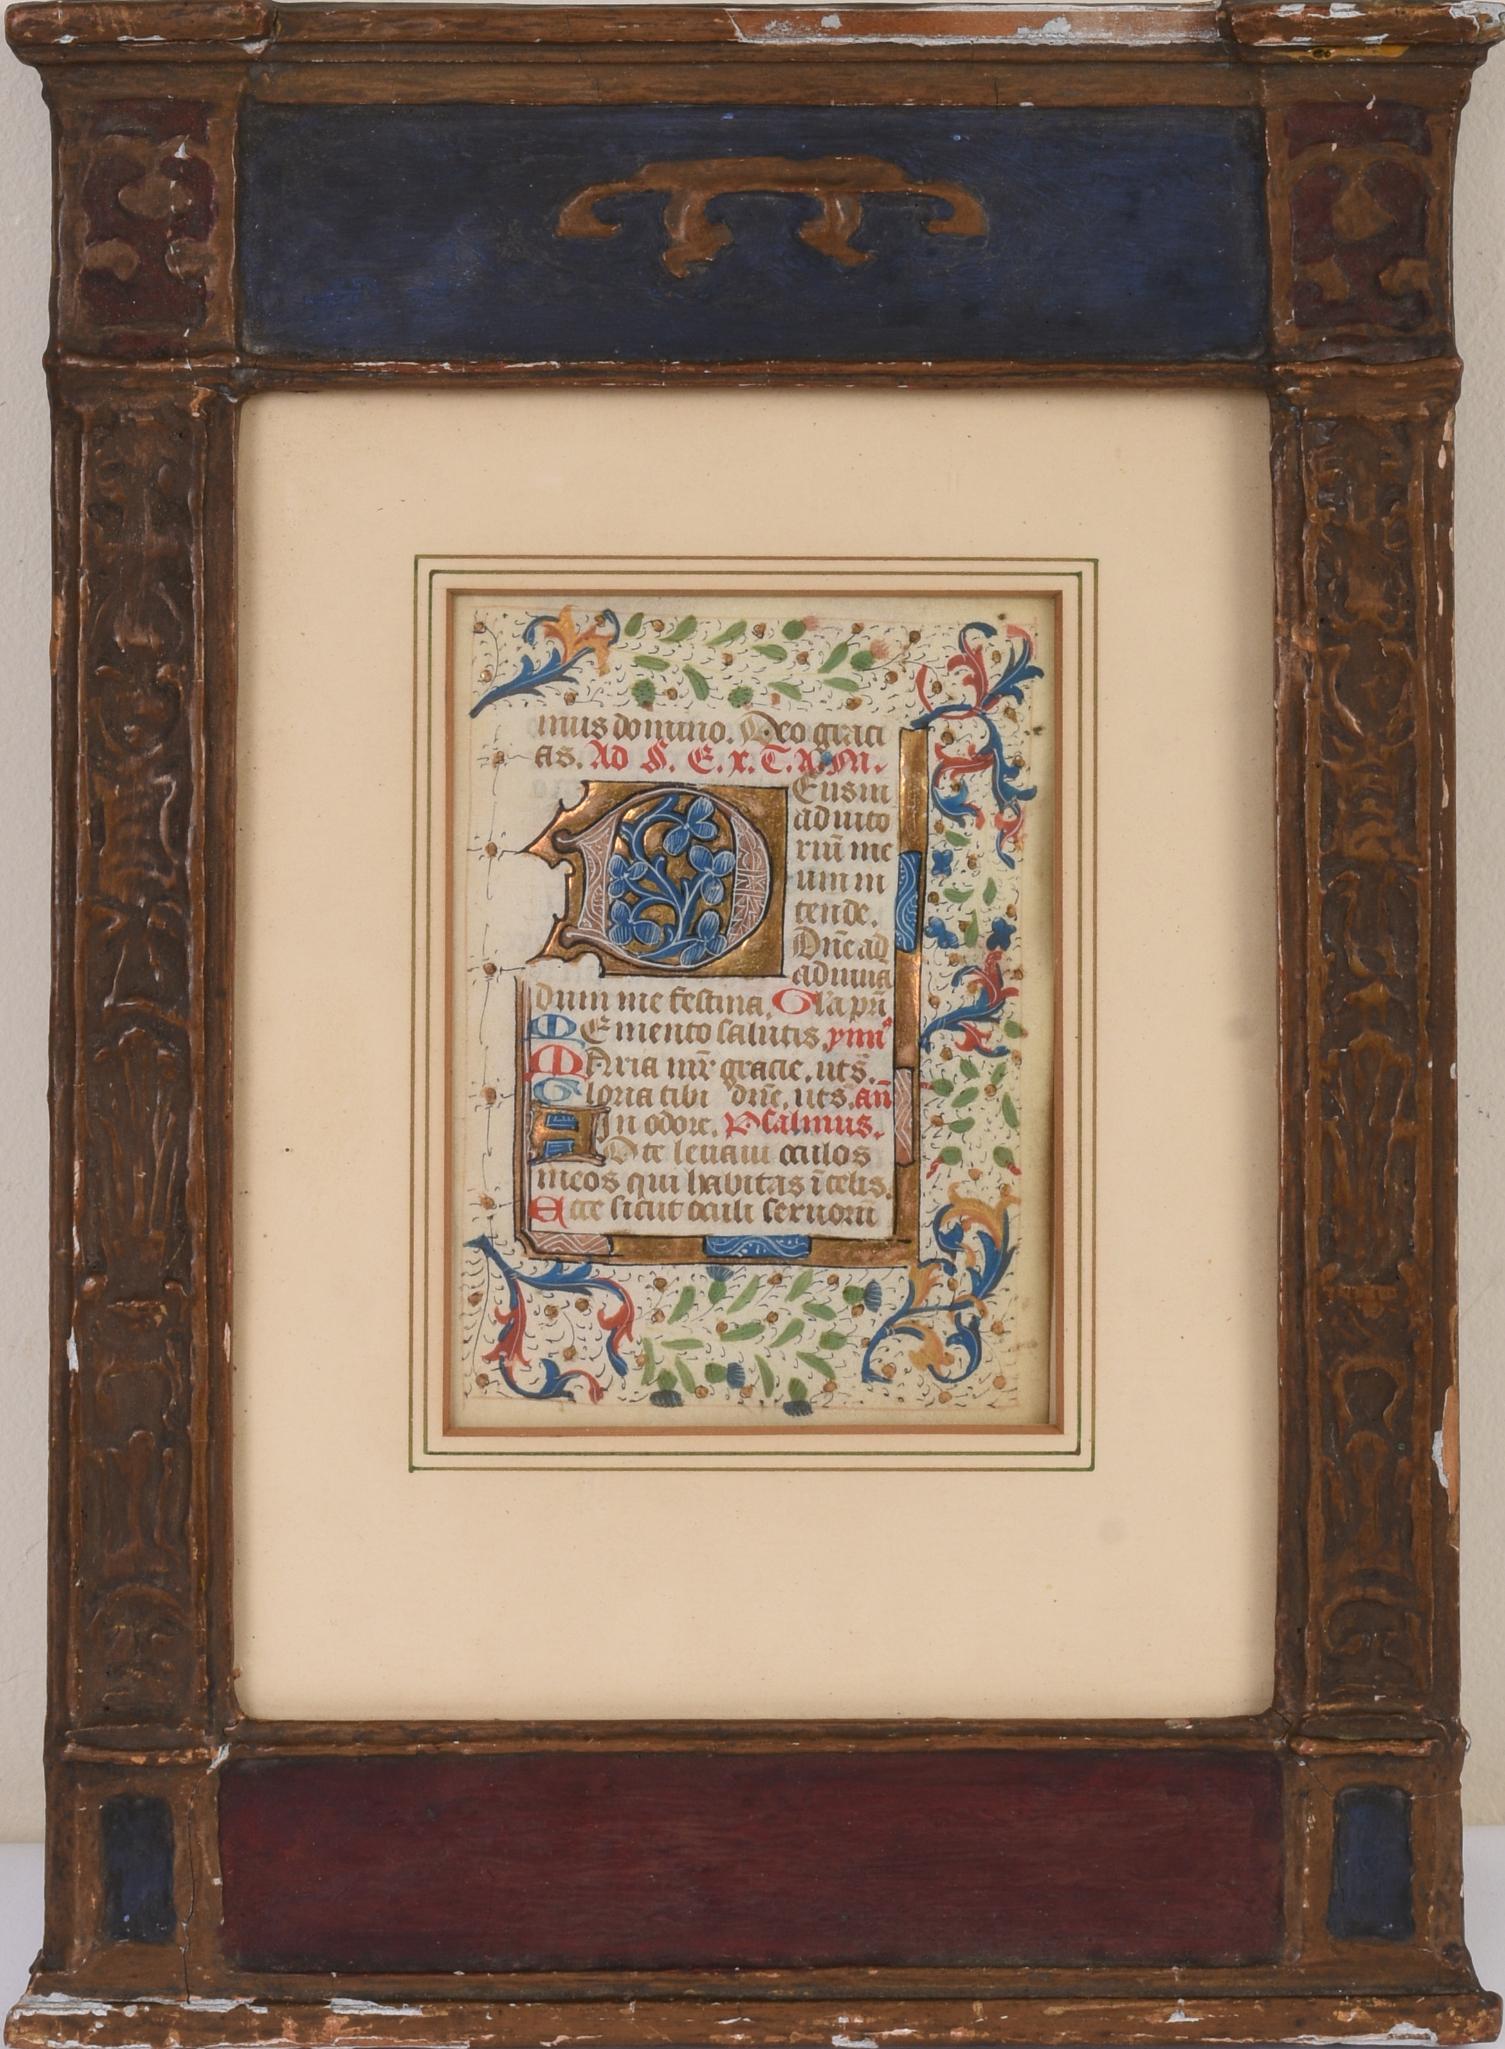 mus domino. Deo graci
as. Ad S. E. x. T. A. M.
D Eus in
adiuto
riū me
um in
tende.
Dn̄e ad
adiuua
dum me festina. Gl'a pr̄i
M Emento salutis. ymn⁹
M Aria mr̄ gracie. ut s̄.
G loria tibi dn̄e. ut s̄. an̄
In odore. Psalmus.
A D te leuaui oculos
meos qui habitas ī celis.
E cce sicut oculi seruorū